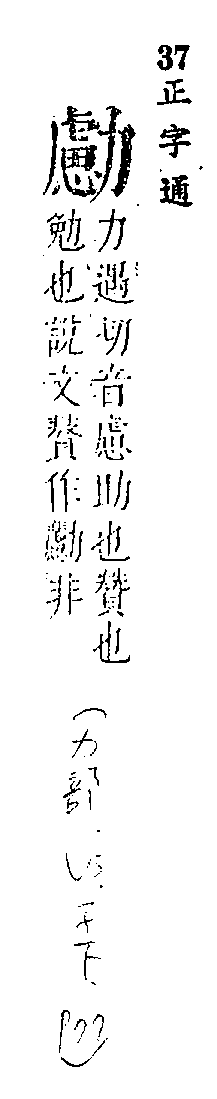 37 正字通
勴
力遇切音慮助也贊也
勉也說文贊作勴非
(力部